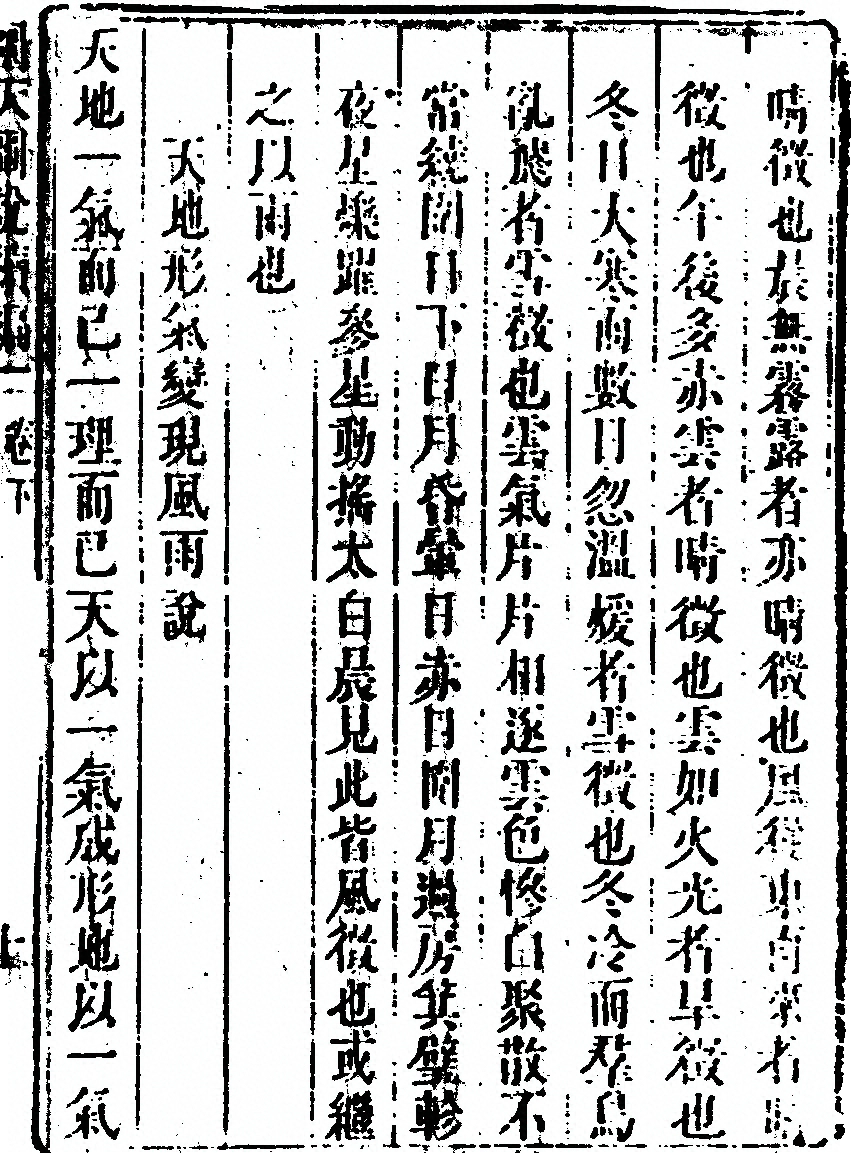 晴徵也晨無霧露者亦晴徵也風從東南來者
徵也午後多赤雲者晴徵也雲如火光者旱徵也
冬日大寒而數日忽溫煖者雪徵也冬冷而羣鳥
亂飛者雪徵也雲氣片片相逐雲色慘白聚散不
常繞圍日下日月昏暈日赤日闇月過房箕壁軫
夜星樂躍參星動搖太白晨見此皆風徵也或繼
之以雨也
天地形氣變現風雨說
天地一氣而已一理而已天以一氣成形地以一氣
卷下